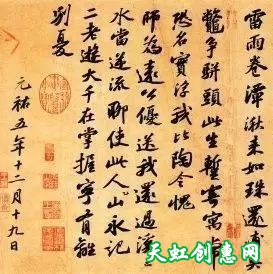 雷雨卷潭湫来如珠還浦魚
鼈争駢頭此生暫寄寓常
恐名實浮我比陶令愧
師為遠公優送我還過溪
水當逆流聊使此人山永記
二老遊大千在掌握寧有離
別憂
元祐五年十二月十九日
天虹创意网